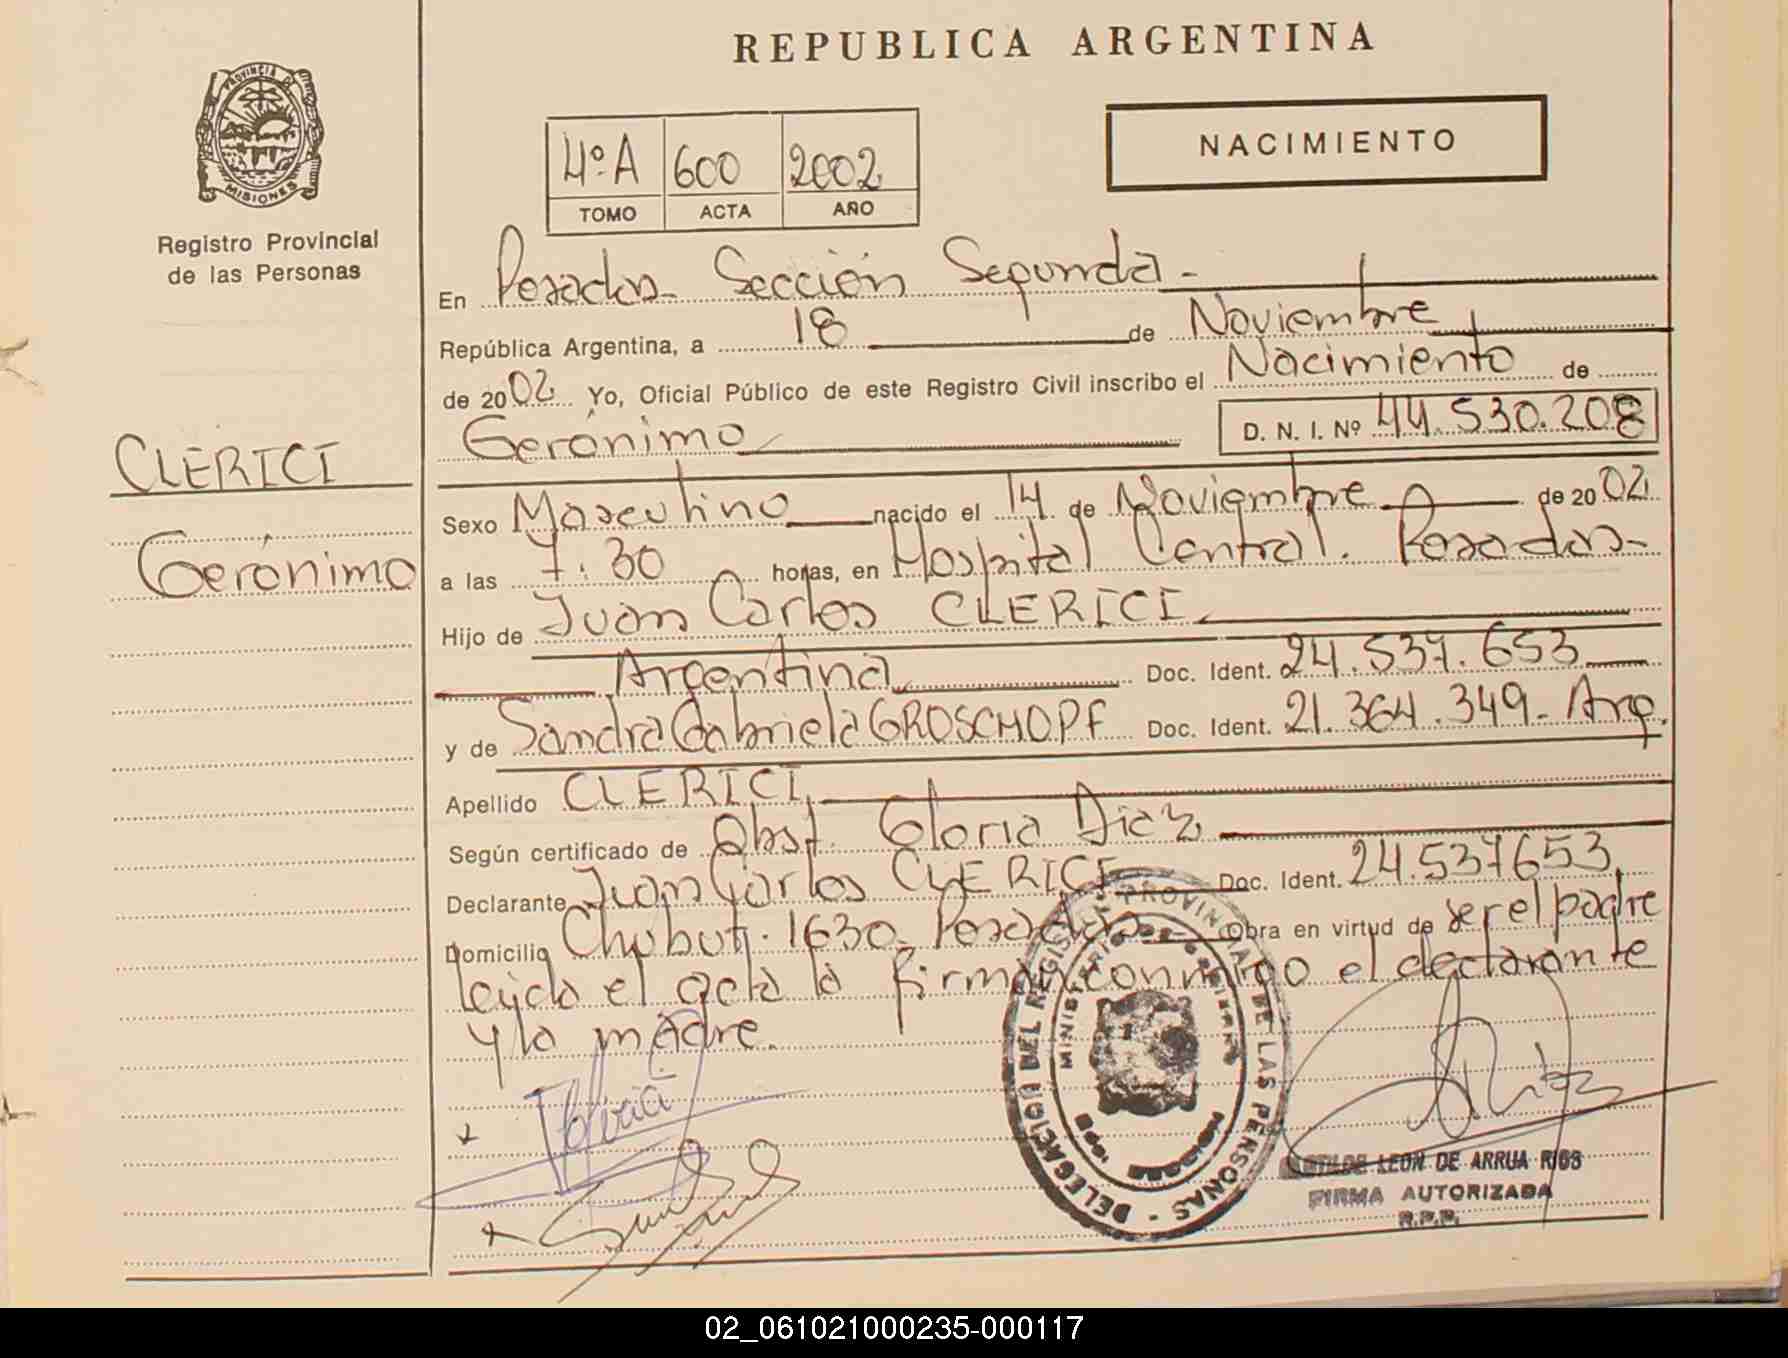 REPUBLICA ARGENTINA
PROVINCIA DE
MISIONES
Registro Provincial
de las Personas
4º A 600 2002
TOMO ACTA AÑO
NACIMIENTO
En Posadas Sección Segunda -
República Argentina, a 18 de Noviembre
de 2002 Yo, Oficial Público de este Registro Civil inscribo el Nacimiento de
Gerónimo D. N. I. Nº 44.530.208
CLERICI
Gerónimo
Sexo Masculino nacido el 14 de Noviembre de 2002
a las 7:30 horas, en Hospital Central. Posadas-
Hijo de Juan Carlos CLERICI
Argentina Doc. Ident. 24.537.653
y de Sandra Gabriela GROSCHOPF Doc. Ident. 21.364.349- Arg.
Apellido CLERICI
Según certificado de Obst. Gloria Diaz
Declarante Juan Carlos CLERICI Doc. Ident. 24.537653
Domicilio Chubut. 1630. Posadas Obra en virtud de ser el padre
leída el acta la firman conmigo el declarante
y la madre.
DELEGACION DEL REGISTRO PROVINCIAL DE LAS PERSONAS -
MINISTERIO DE GOBIERNO
MISIONES
Clérici
LEON DE ARRUA RIOS
FIRMA AUTORIZADA
R.P.P.
02_061021000235-000117